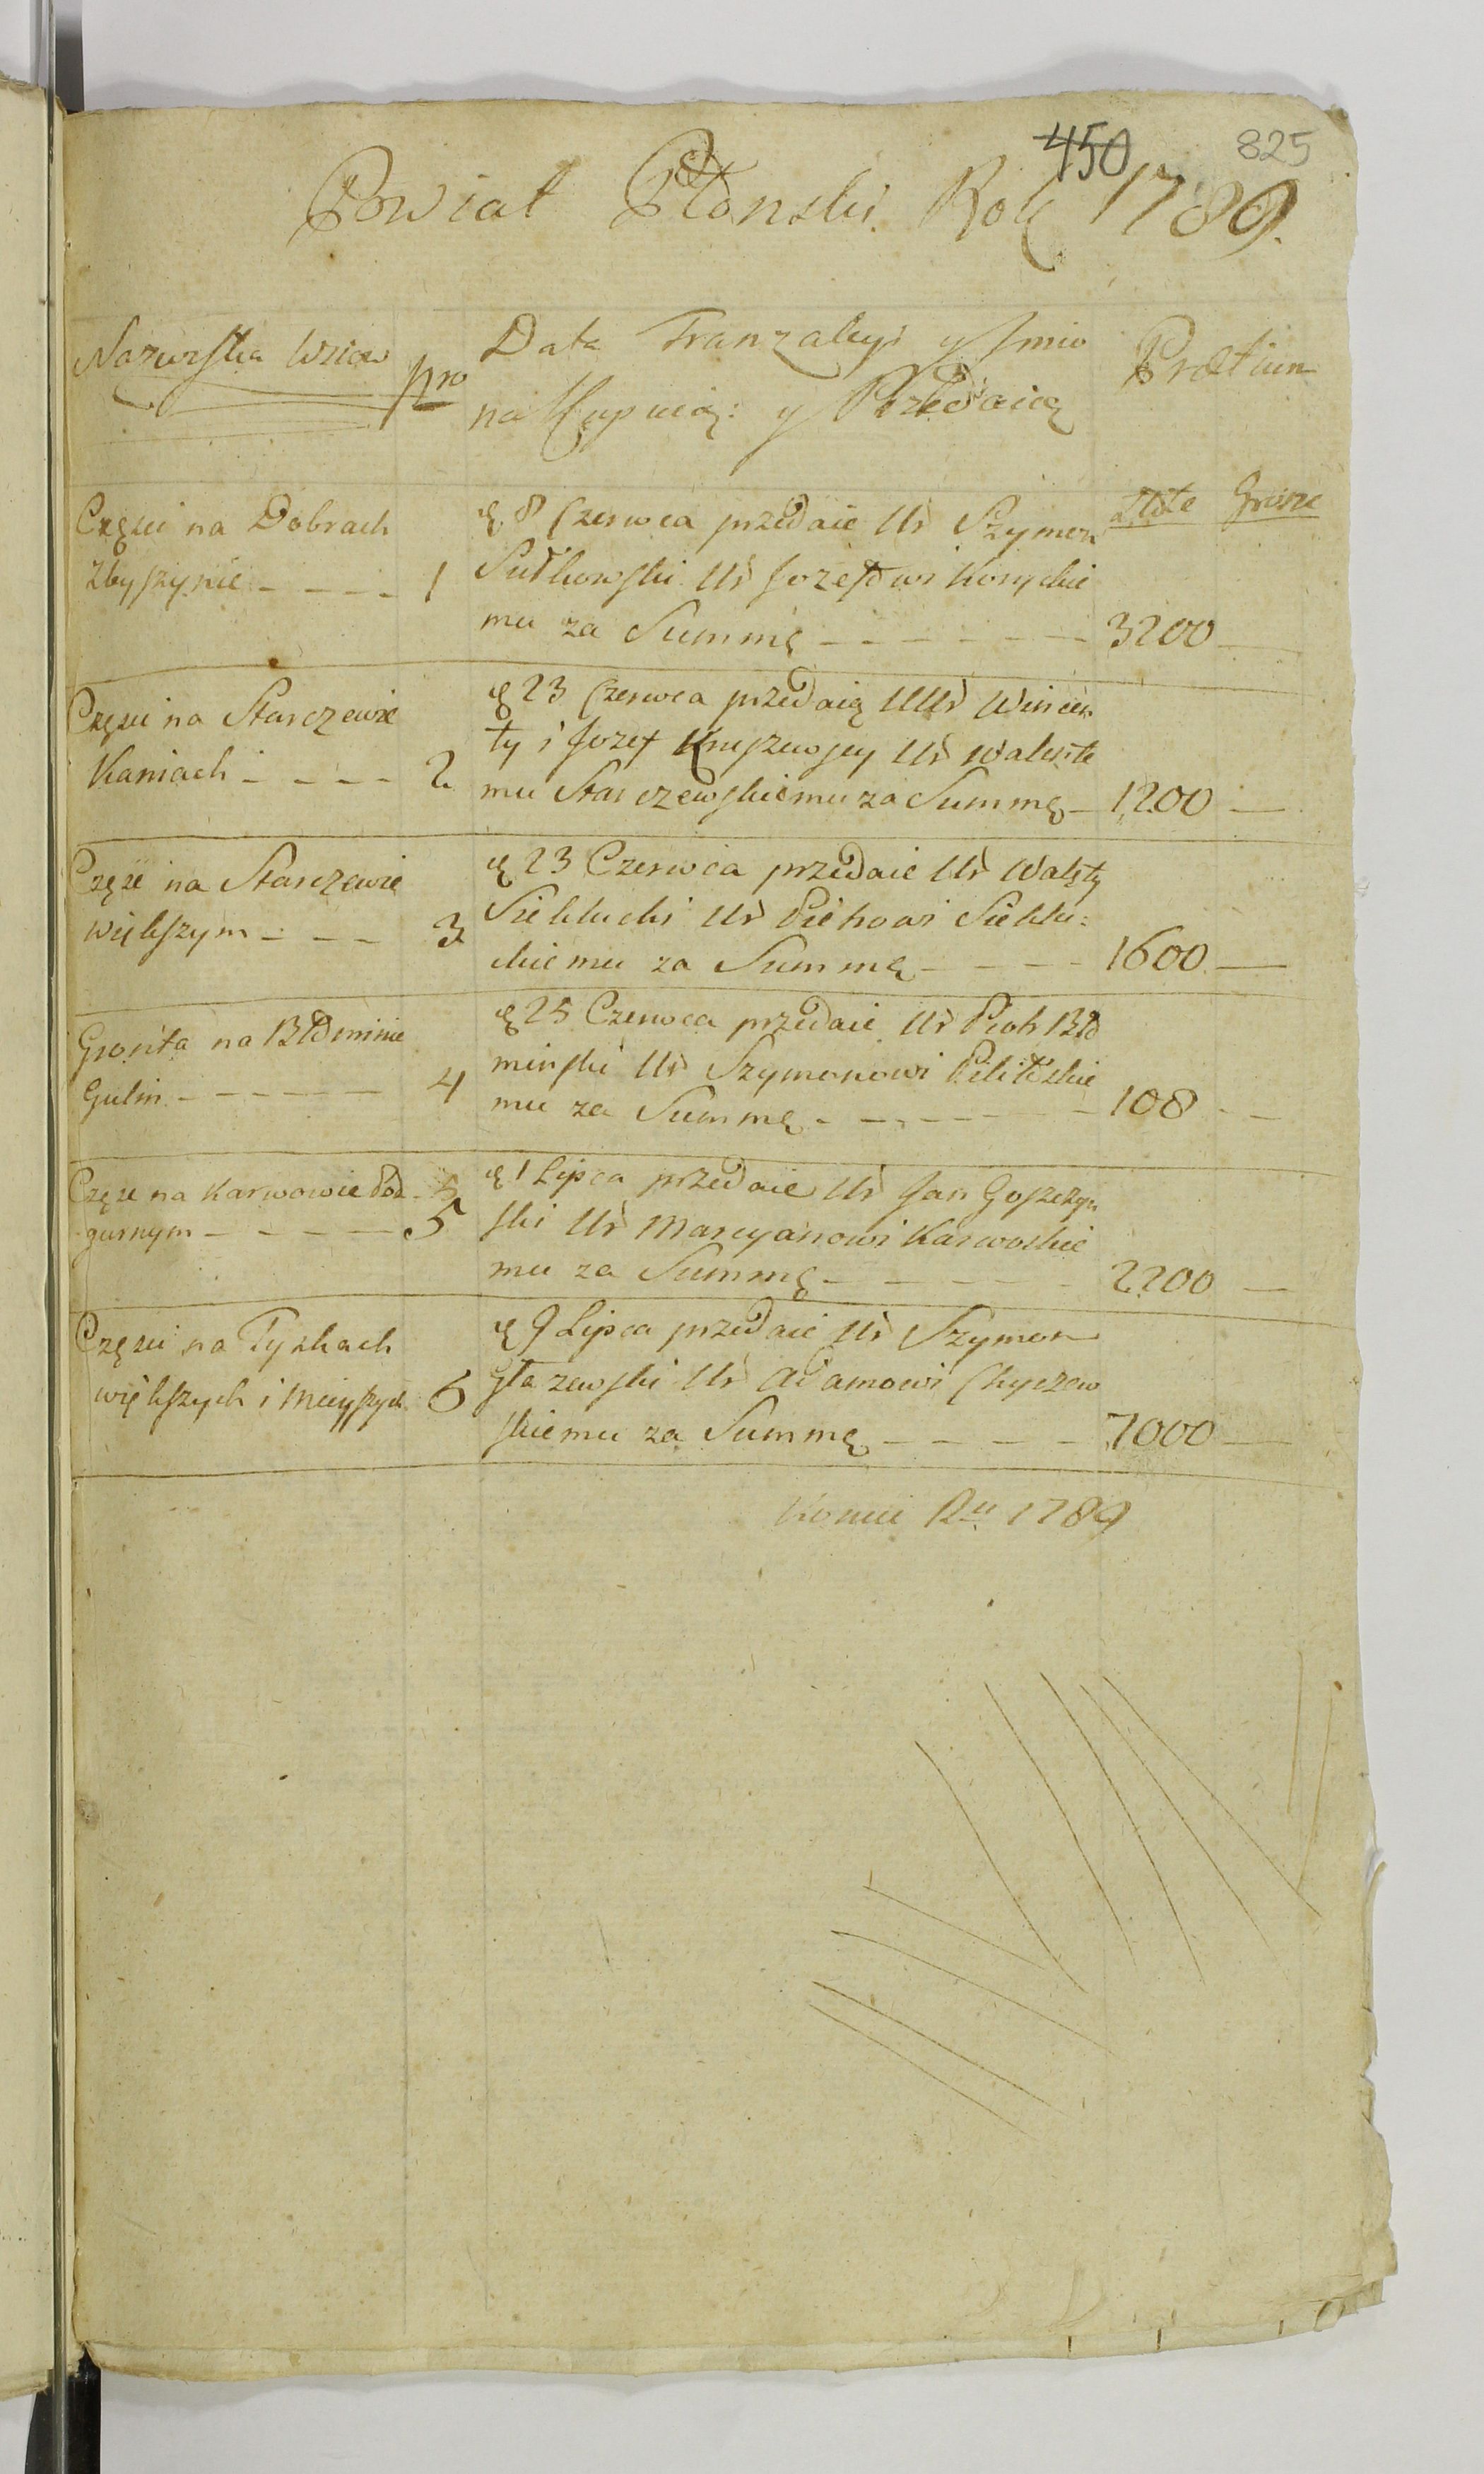 450 825
Powiat Płonski Rok 1789.
Nazwiska Wsiow
Nro
Data Tranzakcyi y Jmio
na Kupuią: y Przedaiią
Prætium
Części na Dobrach
Zbyszynie - - - - 1
ę 8 Czerwca przedaie Ur Szymon
Sułkowski Ur Jozefowi Konyckie
mu za Summę - - - - - -
złote Grosze
3200 —
Częsci na Starczewie
Kaniach - - - - 2
ę 23 Czerwca przedaią UUr Wincen
ty i Jozef Kruszewscy Ur Walente
mu Starczewskiemu za Summę - 1200 —
Częsc na Starczewie
większym - - - 3
ę 23 Czerwca przedaie Ur Walęty
Siekłucki Ur Piotrowi Siekłu:
ckiemu za Summę - - - - 1600 —
Gronta na Błominie
Gulin - - - - - - 4
ę 25 Czerwca przedaie Ur Piotr Bło
minski Ur Szymonowi Pilitowskie
mu za Summę - - - - - - 108 - —
Częsc na Karwowie Pod
gurnym - - - - - 5
ę 1 Lipca przedaie Ur Jan Goszczyn
ski Ur Marcyanowi Karwoskie
mu za Summę - - - - - 2200 —
Częsci na Tyskach
większych i Mnieyszych 6
ę 9 Lipca przedaie Ur Szymon
Głazewski Ur Adamowi Chyczew
skiemu za Summę - - - - - 7000 —
Koniec Ru 1789